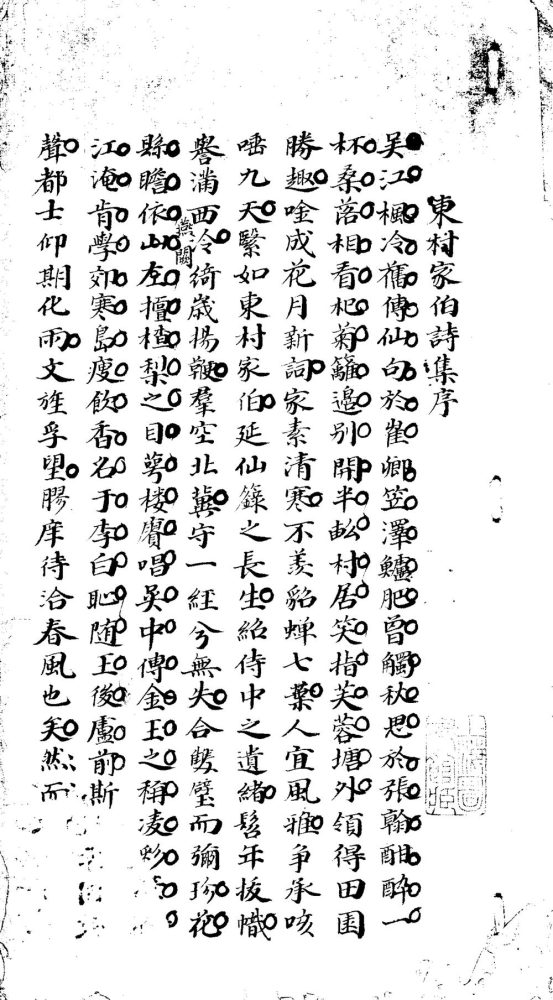 東村家伯詩集序
吳江楓冷舊傳仙句於崔卿笠澤鱸肥曾觸秋思於張翰酣醉一
杯桑落相看杞菊籬邊別開半畝村居笑指芙蓉塘外領得田園
勝趣唫成花月新詞家素清寒不羨貂蟬七葉人宜風雅争承咳
唾九天繄如東村家伯延仙籙之長生紹侍中之遺緒髫年拔幟
譽滿西泠綺歲揚鞭羣空北冀守一經兮無失合雙璧而彌珍花
縣瞻依山左擅楂梨之目萼楼賡唱吳中傳金玉之稱凌彩
燕闕
江淹肯學郊寒島瘦飲香名于李白恥随王後盧前斯
聲都士仰期化雨文旌孚望膠庠待洽春風也矣然而